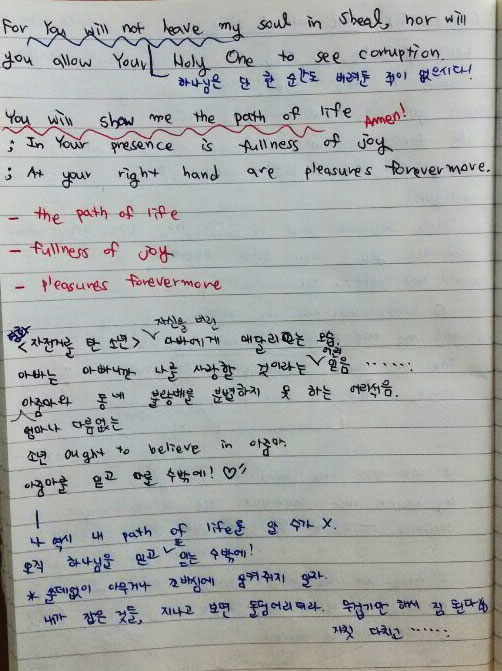 For You will not leave my soul in Sheal, nor will
you allow Your Holy One to see corruption
하나님은 단 한 순간도 버려둔 적이 없으시다!
You will show me the path of life Amen!
; In Your presence is fullness of joy
; At your right hand are pleasures forevermore.
- the path of life
- fullness of joy
- pleasures forevermore
영화
<자전거를 탄 소년> 자신을 버린 아빠에게 매달리는 모습.
아빠는 아빠니까 나를 사랑할 것이라는 어린 믿음 ......
아줌마와 동네 불량배를 분별하지 못 하는 어리석음.
엄마나 다름없는
소년 ought to believe in 아줌마.
아줌마를 믿고 따를 수밖에! ♡
나 역시 내 path of life를 알 수가 X.
오직 하나님을 믿고 또 믿는 수밖에!
* 쓸데없이 아무거나 조바심에 움켜쥐지 말자.
내가 잡은 것들, 지나고 보면 돌덩어리더라. 무겁기만 해서 짐 된다
자칫 다치고 ......